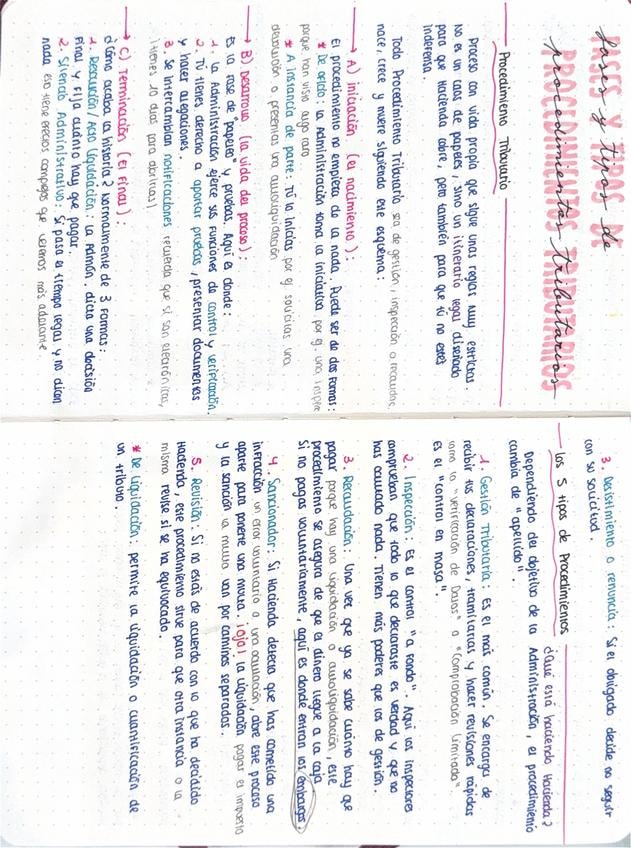 FASES Y TIPOS DE
PROCEDIMIENTOS TRIBUTARIOS
fases y tipos de
procedimientos tributarios
Procedimiento Tributario
Proceso con vida propia que sigue unas reglas muy estrictas.
No es un caos de papeles, sino un itinerario legal diseñado
para que Hacienda cobre, pero también para que tú no estés
indefensa.
Todo Procedimiento Tributario sea de gestión, inspección o recaudac.
nace, crece y muere siguiendo este esquema:
A) iniciación (el nacimiento):
El procedimiento no empieza de la nada. Puede ser de dos formas:
* De oficio: la Administración toma la iniciativa por ej. una inspec
porque han visto algo raro
* A instancia de parte: Tú la inicias por ej solicitas una
devolución o presentas una autoliquidación
B) Desarrollo (la vida del proceso):
Es la fase de "papeleo" y pruebas. Aquí es donde:
1. La Administración ejerce sus funciones de control y verificación.
2. Tú tienes derecho a aportar pruebas, presentar documentos
y hacer alegaciones.
3. Se intercambian notificaciones recuerda que si son electrónicas,
¡tienes 10 días para abrirlas!
C) Terminación (El Final):
¿Cómo acaba la historia? Normalmente de 3 formas:
1. Resolución / Acto liquidación: la Admón. dicta una decisión
final y fija cuánto hay que pagar.
2. Silencio Administrativo: Si pasa el tiempo legal y no dicen
nada eso tiene efectos complejos que veremos más adelante.
3. Desistimiento o renuncia: Si el obligado decide no seguir
con su solicitud.
Los 5 tipos de Procedimientos ¿Qué está haciendo Hacienda?
Dependiendo del objetivo de la Administración, el procedimiento
cambia de "apellido".
1. Gestión Tributaria: es el más común. Se encarga de
recibir tus declaraciones, tramitarlas y hacer revisiones rápidas
como la "verificación de Datos" o "Comprobación Limitada"
Es el "control en masa".
2. Inspección: Es el control "a fondo". Aquí los inspectores
comprueban que todo lo que declaraste es verdad y que no
has ocultado nada. Tienen más poderes que los de gestión.
3. Recaudación: Una vez que ya se sabe cuánto hay que
pagar porque hay una liquidación o autoliquidación, este
procedimiento se asegura de que el dinero llegue a la caja
Si no pagas voluntariamente, aquí es donde entran los embargos.
4. Sancionador: Si Hacienda detecta que has cometido una
infracción un error voluntario o una ocultación, abre este proceso
aparte para ponerte una multa. ¡ojo! la liquidación pagar el impuesto
y la sanción la multa van por caminos separados.
5. Revisión: Si no estás de acuerdo con lo que ha decidido
Hacienda, este procedimiento sirve para que otra instancia o la
misma revise si se ha equivocado.
* De Liquidación: permite la liquidación o cuantificación de
un tributo.